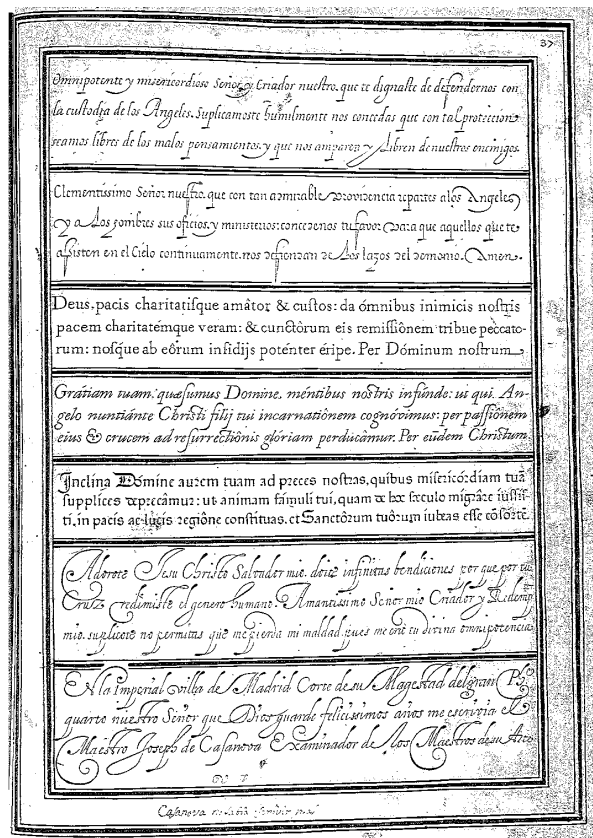 37
Omnipotente y misericordioso Señor, y Criador nuestro, que te dignaste de defendernos con
la custodia de los Angeles. Suplicamoste humilmente nos concedas que con tal proteccion
seamos libres de los malos pensamientos, y que nos amparen y libren de nuestros enemigos.
Clementissimo Señor nuestro, que con tan admirable providencia repartes a los Angeles,
y a los hombres sus oficios, y ministerios: concedenos tu favor para que aquellos que te
assisten en el Cielo continuamente, nos defiendan de los lazos del demonio. Amen.
Deus, pacis charitatisque amâtor & custos: da ómnibus inimicis nostris
pacem charitatémque veram: & cunctòrum eis remissiônem tribue peccato-
rum: nosque ab eôrum insidijs poténter éripe. Per Dóminum nostrum
Gratiam tuam, quæsumus Domine, méntibus nostris infúnde: ut qui, An-
gelo nuntiánte Christi filij tui incarnatiônem cognóvimus: per passiônem
eius & crucem ad resurrectiônis glóriam perducâmur. Per eúdem Christum
Inclina Dómine aurem tuam ad preces nostras, quibus misericórdiam tuã
supplices deprecâmur: ut animam fámuli tui, quam de hoc sæculo migrâre iussis-
ti, in pacis ac lucis regiône constituas, et Sanctôrum tuôrum iubeas esse cõsorte.
Adorote Iesu Christo Salvador mio, doite infinitas bendiciones por que por tu
Cruz redimiste el genero humano. Amantissimo Señor mio Criador y Redentor
mio, suplicote no permitas que me pierda mi maldad, pues me crió tu divina omnipotencia
EN la Imperial Villa de Madrid Corte de su Magestad del gran Phe.
quarto nuestro Señor que Dios guarde felicissimos años me escrivia el
Maestro Joseph de Casanova Examinador de los Maestros de su Arte
Casanova